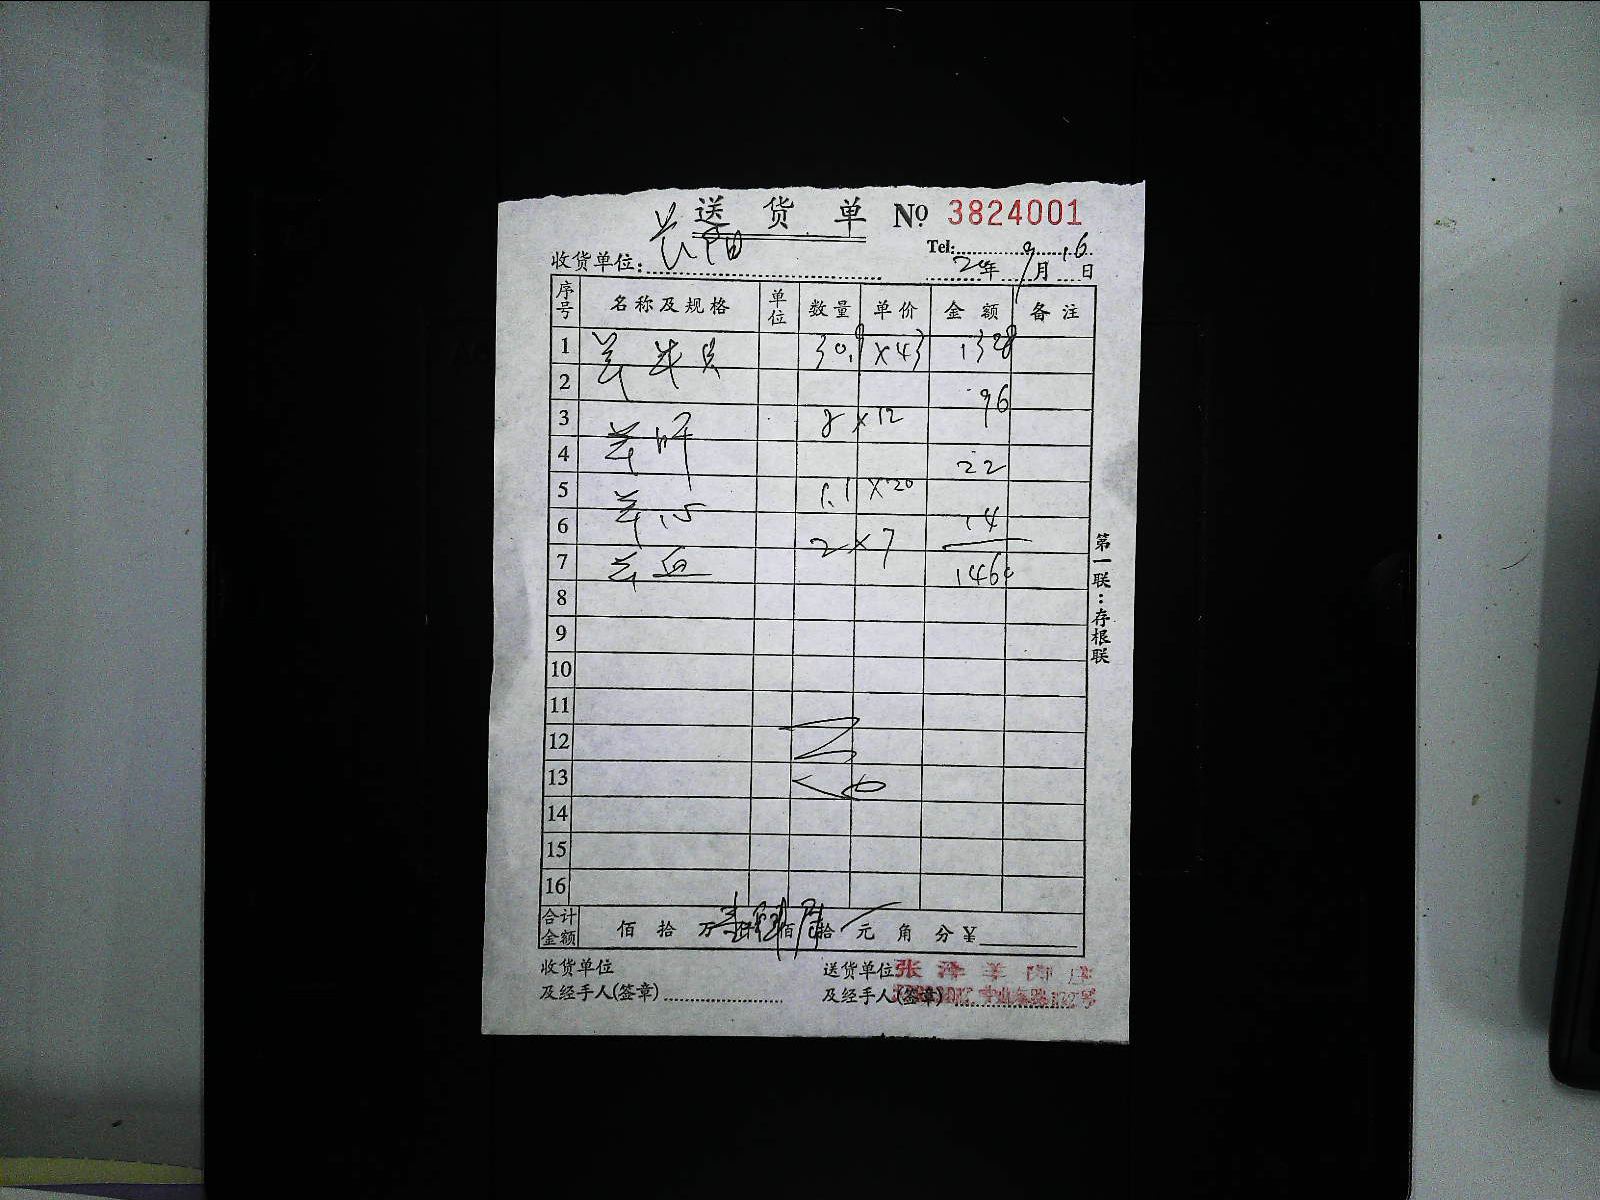 送货单 No 3824001
Tel:
收货单位: 20年 9月 16日
序号 名称及规格 单位 数量 单价 金额 备注
1 羊 30.9 ×43 1328
2 96
3 羊肝 8 ×12
4 22
5 羊心 1.1 ×20
6 14
7 羊血 2 ×7 1460
8
9
10
11
12
13
14
15
16
合计金额 佰 拾 万 仟 佰 拾 元 角 分 ¥
收货单位 送货单位 张泽羊肉庄
及经手人(签章) 及经手人(签章)
第一联:存根联